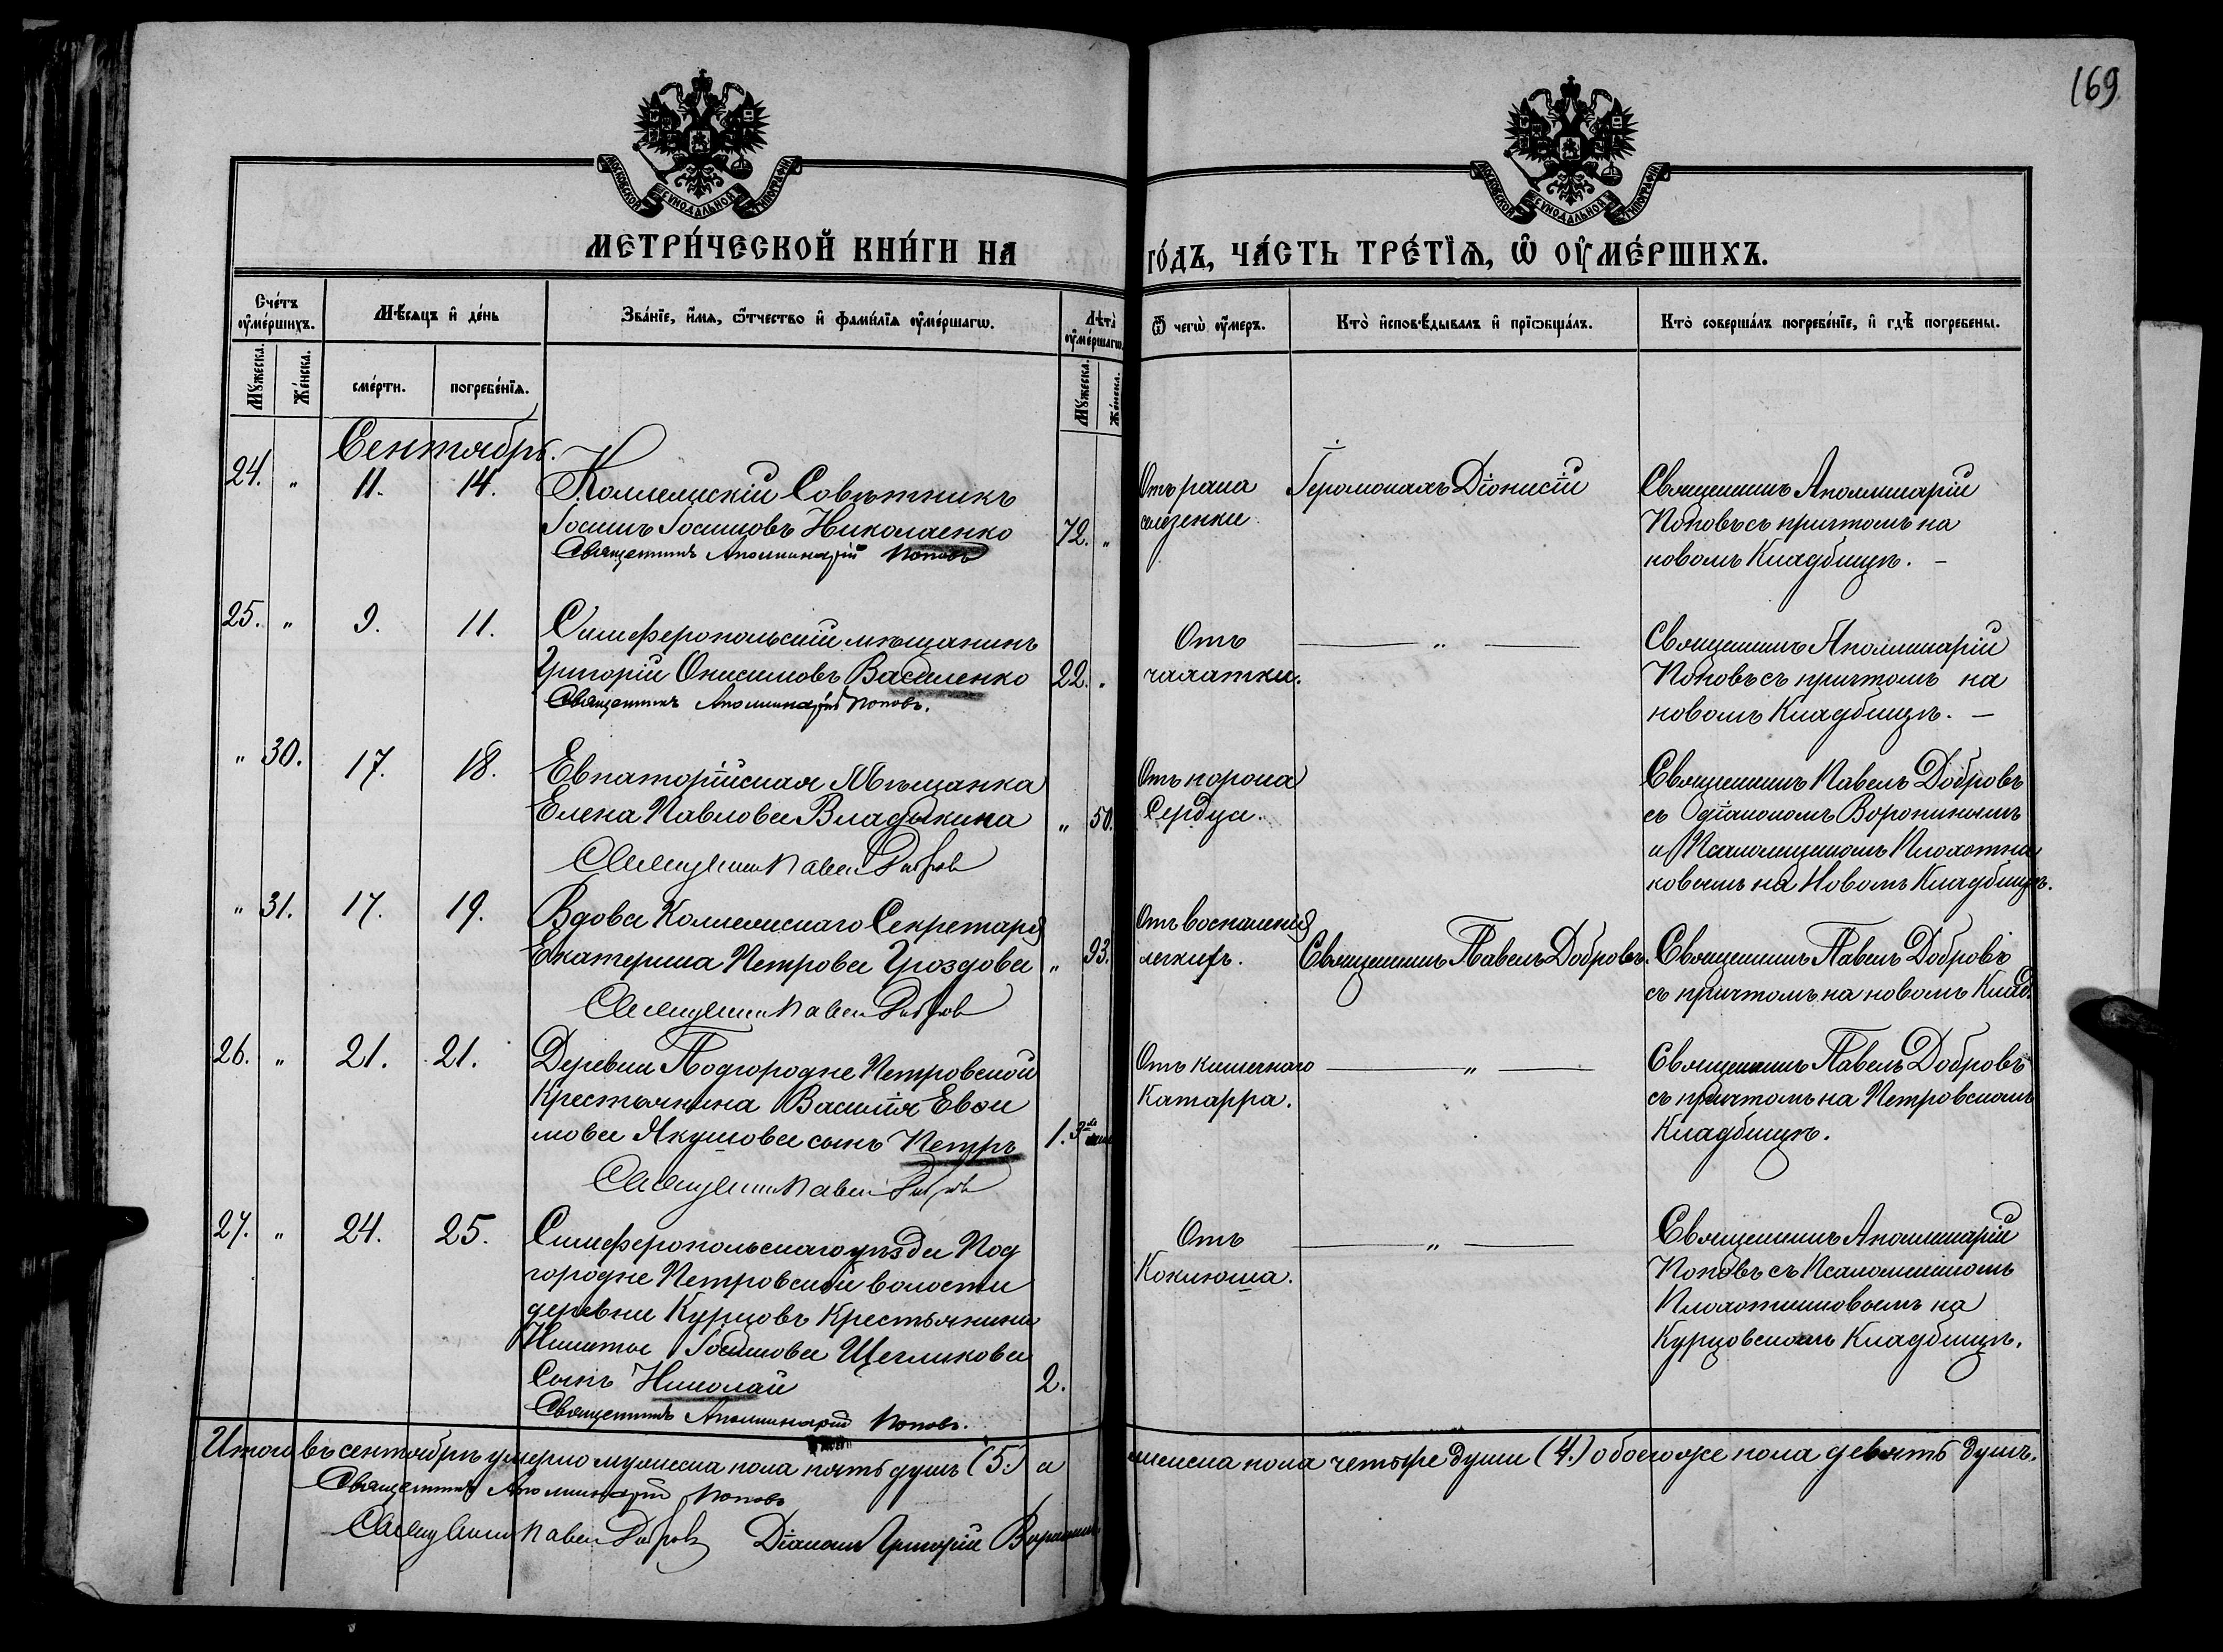 169
МОСКОВСКОЙ СѴНОДАЛЬНОЙ ТИПОГРАФІИ
МОСКОВСКОЙ СѴНОДАЛЬНОЙ ТИПОГРАФІИ
МЕТРИ́ЧЕСКОЙ КНИ́ГИ НА
ГО́ДЪ, ЧА́СТЬ ТРЕ́ТЇѦ, Ѡ҆ ОУ҆МЕ́РШИХЪ.
Сче́тъ оу҆ме́ршихъ.
Мѣ́сяцъ и҆ де́нь
Зва́нїе, и҆́мѧ, ѻ҆́тчество и҆ фами́лїѧ оу҆ме́ршагѡ.
Лѣта̀ оу҆ме́ршагѡ.
Ѿ чегѡ̀ оу҆́меръ.
Кто̀ и҆сповѣ́дывалъ и҆ прїѡбща́лъ.
Кто̀ соверша́лъ погребе́нїе, и҆ гдѣ̀ погребены.
Мꙋ́жеска.
Же́нска.
сме́рти.
погребе́нїѧ.
Мꙋ́жеска.
Же́нска.
Сентябрь.
24. " 11. 14. Коллежскій Совѣтникъ
Іосифъ Іосифовъ Николаенко 72. "
Священникъ Аполлинарій Поповъ
Отъ рака
селезенки
Іеромонахъ Діонисій
Священникъ Аполлинарій
Поповъ съ причтомъ на
новомъ Кладбищѣ. —
25. " 9. 11. Симферопольскій мѣщанинъ
Григорій Онисимовъ Василенко 22. "
Священникъ Аполлинарій Поповъ.
Отъ
чахотки.
— " —
Священникъ Аполлинарій
Поповъ съ причтомъ на
новомъ Кладбищѣ. —
" 30. 17. 18. Евпаторійская Мѣщанка
Елена Павлова Владыкина " 50.
Священникъ Павелъ Добровъ
Отъ порока
Сердца.
Священникъ Павелъ Добровъ
съ діакономъ Воронинымъ
и Псаломщикомъ Плохотни
ковымъ на Новомъ Кладбищѣ.
" 31. 17. 19. Вдова Коллежскаго Секретаря
Екатерина Петрова Гроздова " 93.
Священникъ Павелъ Добровъ
Отъ воспаленія
легкихъ.
Священникъ Павелъ Добровъ.
Священникъ Павелъ Добровъ
съ причтомъ на новомъ Клад.
26. " 21. 21. Деревни Подгородне Петровской
Крестьянина Василія Евои
мова Якушова сынъ Петръ 1.
Священникъ Павелъ Добровъ
Отъ кишечнаго
Катарра.
— " —
Священникъ Павелъ Добровъ
съ причтомъ на Петровскомъ
Кладбищѣ.
27. " 24. 25. Симферопольскаго уѣзда Под
городне Петровской волости
деревни Курцовъ Крестьянина
Никиты Іосифова Щегликова
Сынъ Николай 2.
Священникъ Аполлинарій Поповъ.
Отъ
Коклюша.
— " —
Священникъ Аполлинарій
Поповъ съ Псаломщикомъ
Плохотниковымъ на
Курцовскомъ Кладбищѣ.
Итого въ сентябрѣ умерло мужеска пола пять душъ (5.) а
женска пола четыре души (4.) обоего же пола девять душъ.
Священникъ Аполлинарій Поповъ
Священникъ Павелъ Добровъ Діаконъ Григорій Воронинъ